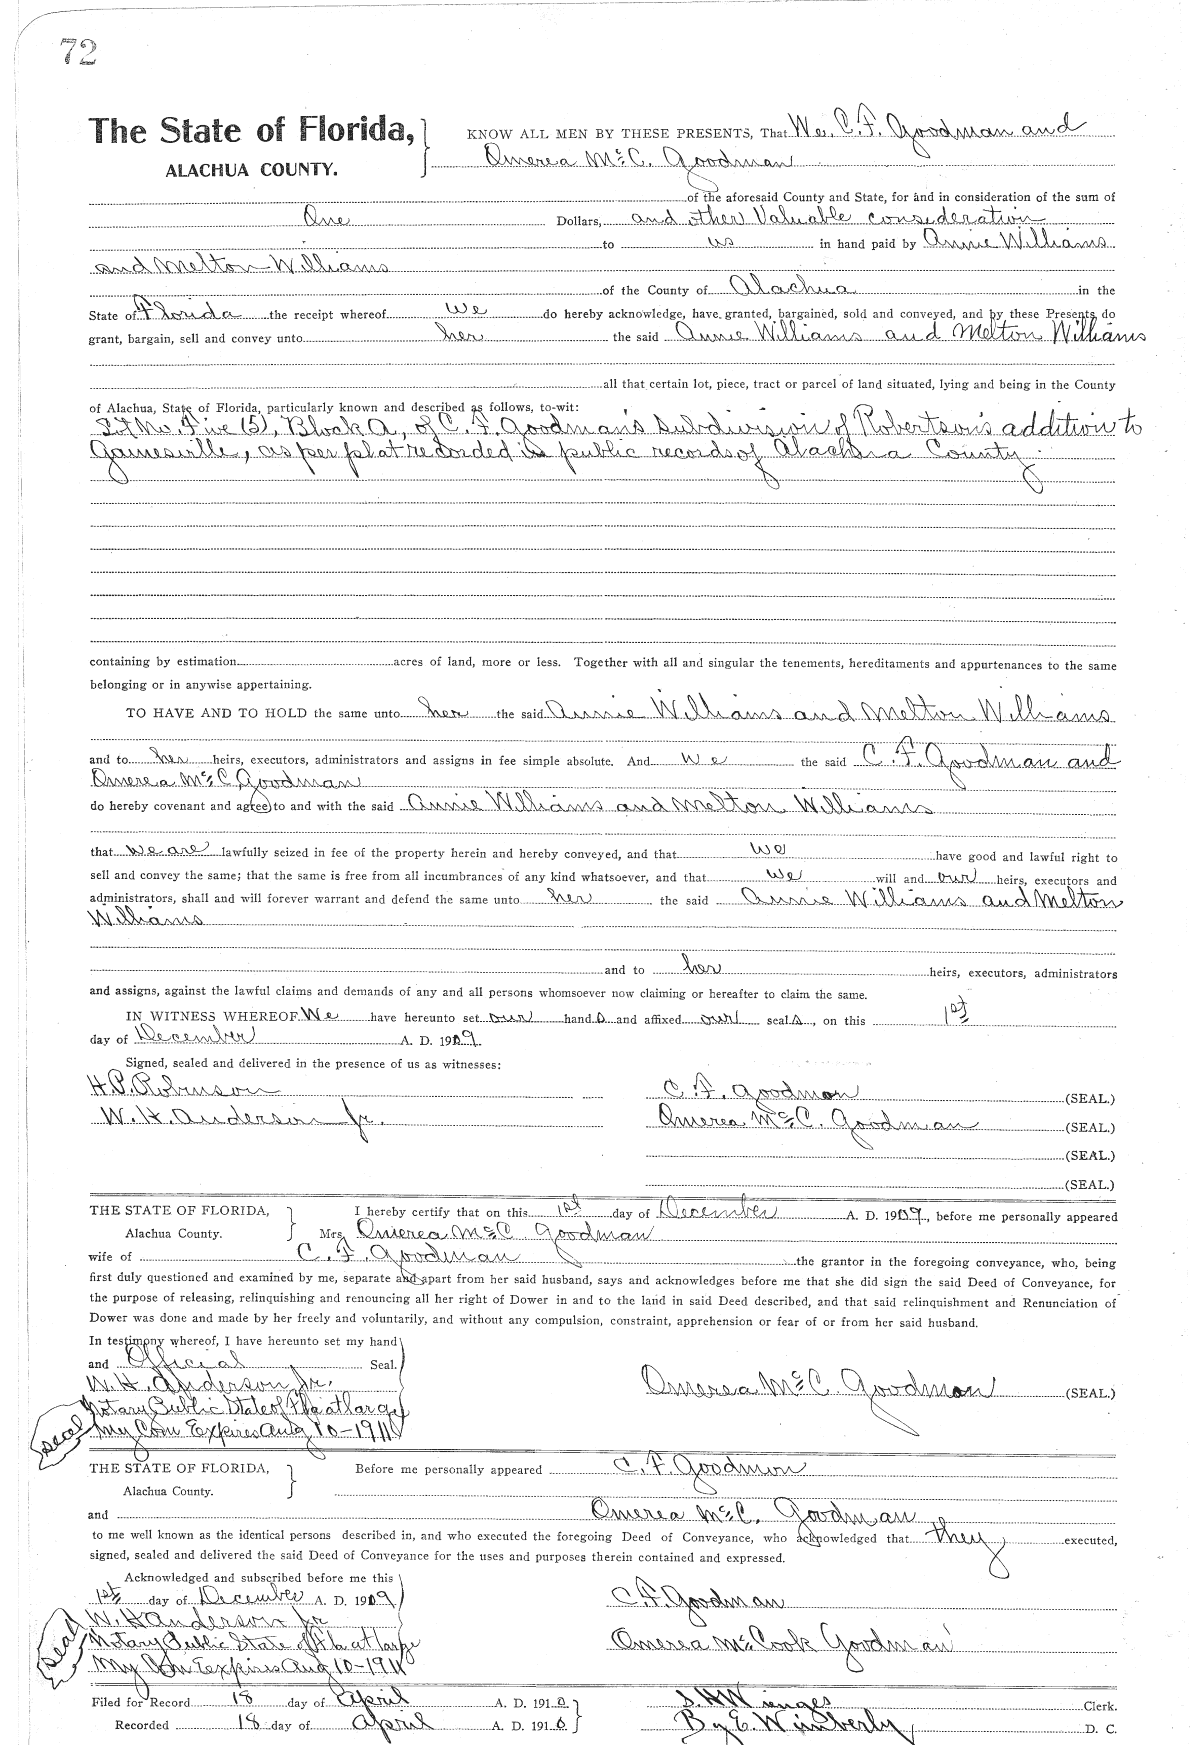 72
The State of Florida,
ALACHUA COUNTY.
KNOW ALL MEN BY THESE PRESENTS, That We, C. F. Goodman and
Omerea McC. Goodman
of the aforesaid County and State, for and in consideration of the sum of
One Dollars, and other Valuable consideration
to us in hand paid by Annie Williams
and Melton Williams
of the County of Alachua in the
State of Florida the receipt whereof we do hereby acknowledge, have granted, bargained, sold and conveyed, and by these Presents do
grant, bargain, sell and convey unto her the said Annie Williams and Melton Williams
all that certain lot, piece, tract or parcel of land situated, lying and being in the County
of Alachua, State of Florida, particularly known and described as follows, to-wit:
Lot No. Five (5), Block A, of C. F. Goodman's Subdivision of Robertson's addition to
Gainesville, as per plat recorded is public records of Alachua County.
containing by estimation acres of land, more or less. Together with all and singular the tenements, hereditaments and appurtenances to the same
belonging or in anywise appertaining.
TO HAVE AND TO HOLD the same unto her the said Annie Williams and Melton Williams
and to her heirs, executors, administrators and assigns in fee simple absolute. And we the said C. F. Goodman and
Omerea McC Goodman
do hereby covenant and agree to and with the said Annie Williams and Melton Williams
that we are lawfully seized in fee of the property herein and hereby conveyed, and that we have good and lawful right to
sell and convey the same; that the same is free from all incumbrances of any kind whatsoever, and that we will and our heirs, executors and
administrators, shall and will forever warrant and defend the same unto her the said Annie Williams and Melton
Williams
and to her heirs, executors, administrators
and assigns, against the lawful claims and demands of any and all persons whomsoever now claiming or hereafter to claim the same.
IN WITNESS WHEREOF We have hereunto set our hands and affixed our seals, on this 1st
day of December A. D. 1909.
Signed, sealed and delivered in the presence of us as witnesses:
H. P. Robinson C. F. Goodman (SEAL.)
W. H. Anderson Jr. Omerea McC. Goodman (SEAL.)
(SEAL.)
(SEAL.)
THE STATE OF FLORIDA, I hereby certify that on this 1st day of December A. D. 1909, before me personally appeared
Alachua County. Mrs. Omerea McC Goodman
wife of C. F. Goodman the grantor in the foregoing conveyance, who, being
first duly questioned and examined by me, separate and apart from her said husband, says and acknowledges before me that she did sign the said Deed of Conveyance, for
the purpose of releasing, relinquishing and renouncing all her right of Dower in and to the land in said Deed described, and that said relinquishment and Renunciation of
Dower was done and made by her freely and voluntarily, and without any compulsion, constraint, apprehension or fear of or from her said husband.
In testimony whereof, I have hereunto set my hand
and Official Seal.
W. H. Anderson Jr. Omerea McC Goodman (SEAL.)
Notary Public State of Fla at large
seal My Com Expires Aug 10-1911
THE STATE OF FLORIDA, Before me personally appeared C. F. Goodman
Alachua County.
and Omerea McC. Goodman
to me well known as the identical persons described in, and who executed the foregoing Deed of Conveyance, who acknowledged that they executed,
signed, sealed and delivered the said Deed of Conveyance for the uses and purposes therein contained and expressed.
Acknowledged and subscribed before me this
1st day of December A. D. 1909 C. F. Goodman
W. H Anderson Jr
Notary Public State of Fla at large Omerea McCook Goodman
seal My Com Expires Aug 10-1911
Filed for Record 18 day of April A. D. 1910 S. H Wienges Clerk.
Recorded 18 day of April A. D. 1910 By E. Wimberly, D. C.